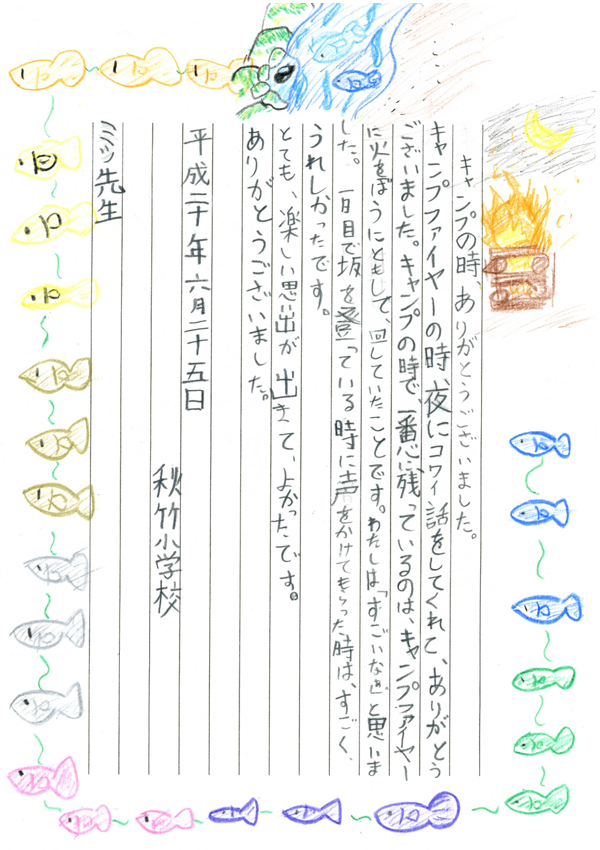 キャンプの時、ありがとうございました。
キャンプファイヤーの時、夜にコワイ話をしてくれて、ありがとう
ございました。キャンプの時で、一番心に残っているのは、キャンプファイヤー
に火をぼうにともして、回していたことです。わたしは「すごいなぁ」と思いま
した。一日目で坂を登っている時に声をかけてもらった時は、すごく、
うれしかったです。
とても、楽しい思い出が出きて、よかったです。
ありがとうございました。
平成二十年六月二十五日
秋竹小学校
ミッ先生